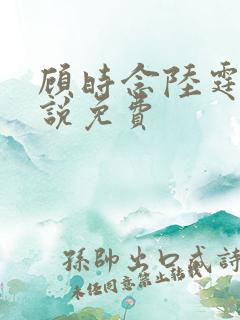 顾時念陸霆
說免費
孫帥出口成詩
未任同意禁止轉載